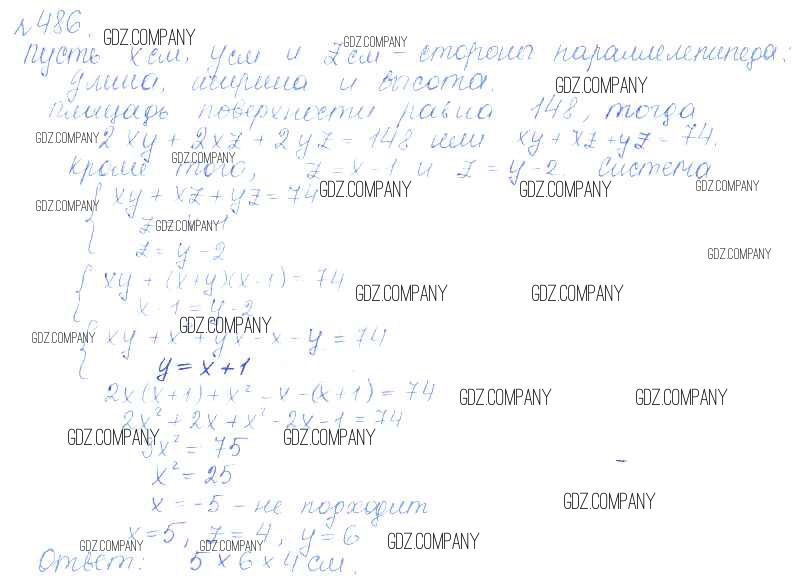 №486. GDZ.COMPANY
Пусть x см, y см и z см – стороны параллелепипеда: GDZ.COMPANY
длина, ширина и высота. GDZ.COMPANY
Площадь поверхности равна 148, тогда
GDZ.COMPANY 2xy + 2xz + 2yz = 148 или xy + xz + yz = 74.
GDZ.COMPANY
Кроме того, z = x - 1 и z = y - 2 Система
xy + xz + yz = 74 GDZ.COMPANY GDZ.COMPANY GDZ.COMPANY
GDZ.COMPANY
z 1 GDZ.COMPANY
z = y - 2 GDZ.COMPANY
xy + (x+y)(x-1) = 74
x - 1 = y - 2 GDZ.COMPANY GDZ.COMPANY
GDZ.COMPANY
GDZ.COMPANY xy + x² + yx - x - y = 74
y = x + 1
2x(x+1) + x² - x - (x+1) = 74 GDZ.COMPANY GDZ.COMPANY
2x² + 2x + x² - 2x - 1 = 74
GDZ.COMPANY GDZ.COMPANY
3x² = 75
x² = 25
x = -5 – не подходит GDZ.COMPANY
x = 5, z = 4, y = 6 GDZ.COMPANY
GDZ.COMPANY GDZ.COMPANY
Ответ: 5 × 6 × 4 см.